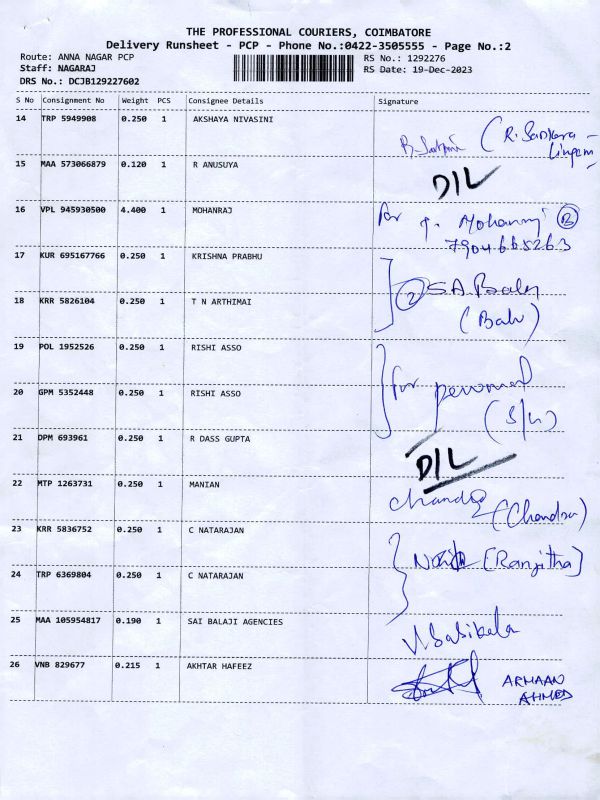 THE PROFESSIONAL COURIERS, COIMBATORE
Delivery Runsheet - PCP - Phone No.:0422-3505555 - Page No.:2
Route: ANNA NAGAR PCP
Staff: NAGARAJ
DRS No.: DCJB129227602
RS No.: 1292276
RS Date: 19-Dec-2023
S No Consignment No Weight PCS Consignee Details Signature
14 TRP 5949908 0.250 1 AKSHAYA NIVASINI
(R. Sankara-
Lingam
15 MAA 573066879 0.120 1 R ANUSUYA D/L
16 VPL 945930500 4.400 1 MOHANRAJ for T. Mohanraj
7904665263
17 KUR 695167766 0.250 1 KRISHNA PRABHU
② S A Balu
18 KRR 5826104 0.250 1 T N ARTHIMAI (Balu)
19 POL 1952526 0.250 1 RISHI ASSO
for
20 GPM 5352448 0.250 1 RISHI ASSO
21 DPM 693961 0.250 1 R DASS GUPTA D/L
22 MTP 1263731 0.250 1 MANIAN Chandra (Chandra)
23 KRR 5836752 0.250 1 C NATARAJAN
[Ranjitha]
24 TRP 6369804 0.250 1 C NATARAJAN
25 MAA 105954817 0.190 1 SAI BALAJI AGENCIES V Sasikala
26 VNB 829677 0.215 1 AKHTAR HAFEEZ ARMAAN
AHMED